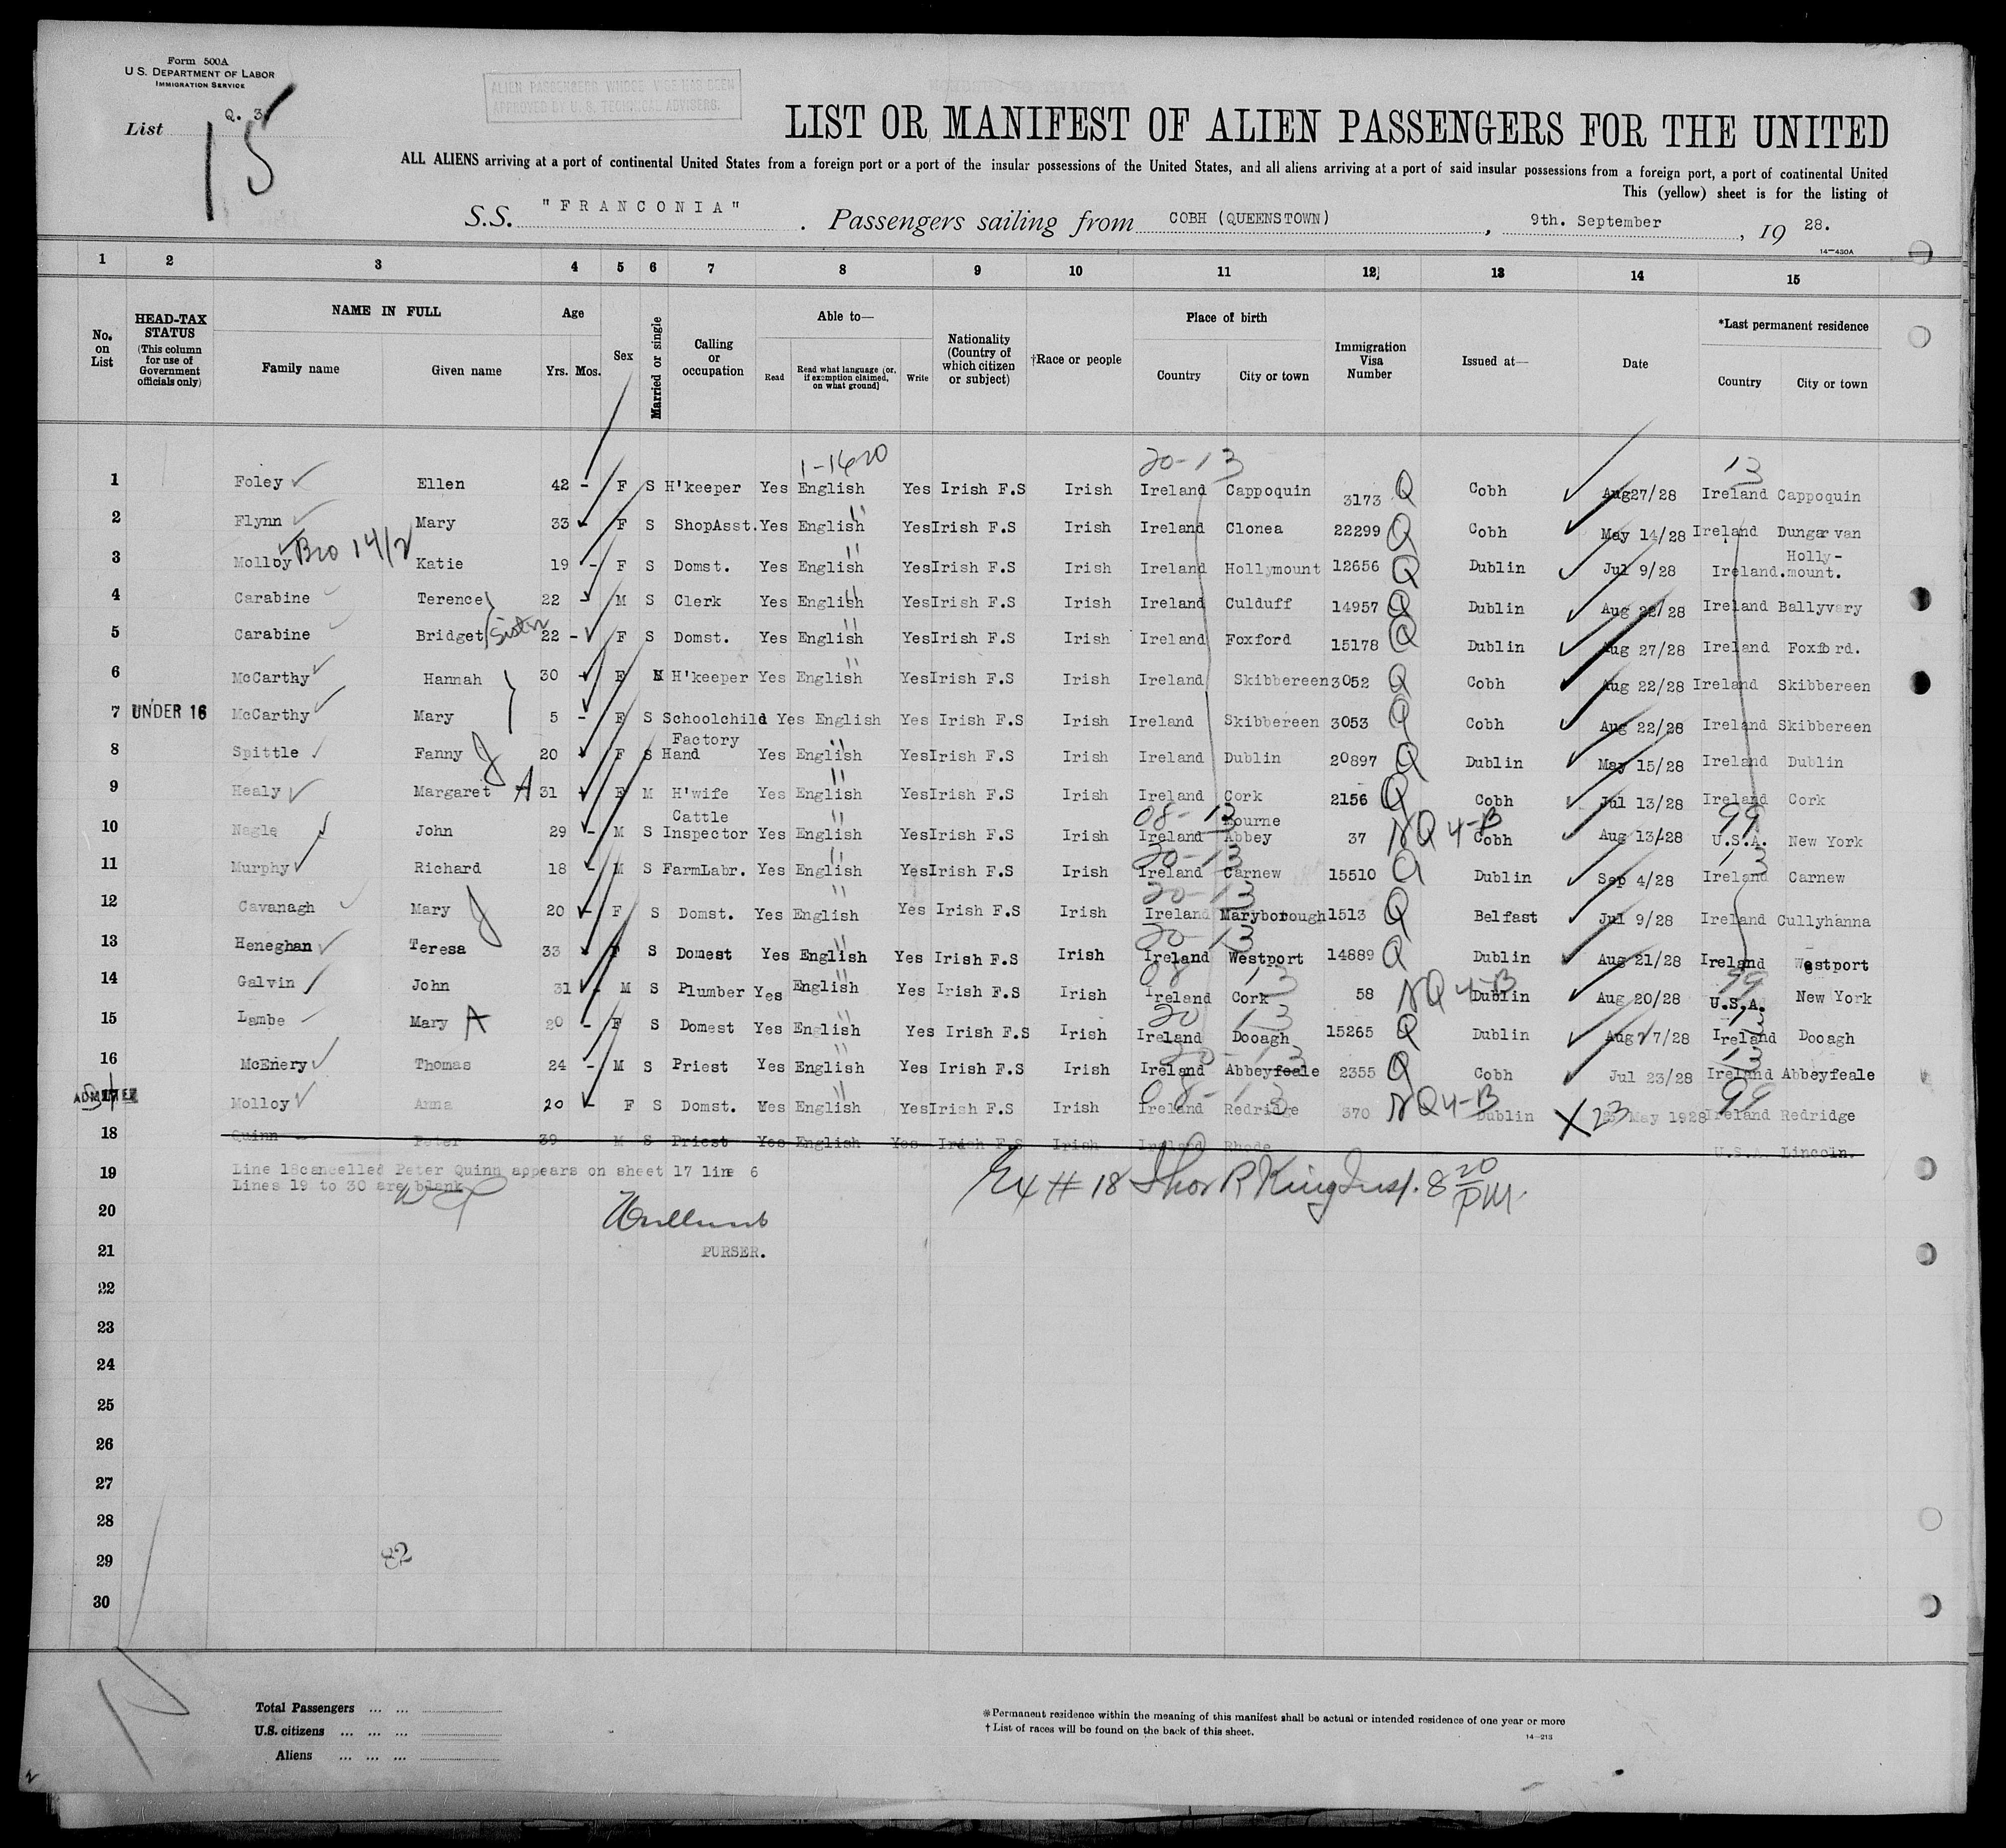 Form 500A
U.S. DEPARTMENT OF LABOR
IMMIGRATION SERVICE
Q. 3
List 15
ALIEN PASSENGERS WHOSE VISE HAS BEEN
APPROVED BY U. S. TECHNICAL ADVISERS.
LIST OR MANIFEST OF ALIEN PASSENGERS FOR THE UNITED
ALL ALIENS arriving at a port of continental United States from a foreign port or a port of the insular possessions of the United States, and all aliens arriving at a port of said insular possessions from a foreign port, a port of continental United
This (yellow) sheet is for the listing of
S.S. "FRANCONIA" . Passengers sailing from COBH (QUEENSTOWN) , 9th. September , 19 28.
14—430A
1 2 3 4 5 6 7 8 9 10 11 12 13 14 15
No. on List
HEAD-TAX STATUS (This column for use of Government officials only)
NAME IN FULL Family name Given name
Age Yrs. Mos.
Sex
Married or single
Calling or occupation
Able to— Read Read what language [or, if exemption claimed, on what ground] Write
Nationality (Country of which citizen or subject)
†Race or people
Place of birth Country City or town
Immigration Visa Number
Issued at—
Date
*Last permanent residence Country City or town
20-13 13
1 Foley Ellen 42 - F S H'keeper Yes English Yes Irish F.S Irish Ireland Cappoquin 3173 Q Cobh Aug27/28 Ireland Cappoquin
2 Flynn Mary 33 F S ShopAsst. Yes English Yes Irish F.S Irish Ireland Clonea 22299 Q Cobh May 14/28 Ireland Dungarvan
Bro 14/2
3 Molloy Katie 19 - F S Domst. Yes English Yes Irish F.S Irish Ireland Hollymount 12656 Q Dublin Jul 9/28 Ireland. Holly-mount.
4 Carabine Terence 22 - M S Clerk Yes English Yes Irish F.S Irish Ireland Culduff 14957 Q Dublin Aug 22/28 Ireland Ballyvary
5 Carabine Bridget Sister 22 - F S Domst. Yes English Yes Irish F.S Irish Ireland Foxford 15178 Q Dublin Aug 27/28 Ireland Foxford.
6 McCarthy Hannah 30 - F H'keeper Yes English Yes Irish F.S Irish Ireland Skibbereen 3052 Q Cobh Aug 22/28 Ireland Skibbereen
7 UNDER 16 McCarthy Mary 5 - F S Schoolchild Yes English Yes Irish F.S Irish Ireland Skibbereen 3053 Q Cobh Aug 22/28 Ireland Skibbereen
8 Spittle Fanny 20 F S Factory Hand Yes English Yes Irish F.S Irish Ireland Dublin 20897 Q Dublin May 15/28 Ireland Dublin
9 Healy Margaret A 31 F M H'wife Yes English Yes Irish F.S Irish Ireland Cork 2156 Q Cobh Jul 13/28 Ireland Cork
08-13 99
10 Nagle John 29 - M S Cattle Inspector Yes English Yes Irish F.S Irish Ireland Bourne Abbey 37 NQ 4-B Cobh Aug 13/28 U.S.A. New York
20-13 13
11 Murphy Richard 18 - M S FarmLabr. Yes English Yes Irish F.S Irish Ireland Carnew 15510 Q Dublin Sep 4/28 Ireland Carnew
20-13
12 Cavanagh Mary 20 - F S Domst. Yes English Yes Irish F.S Irish Ireland Maryborough 1513 Q Belfast Jul 9/28 Ireland Cullyhanna
20-13
13 Heneghan Teresa 33 F S Domest Yes English Yes Irish F.S Irish Ireland Westport 14889 Q Dublin Aug 21/28 Ireland Westport
08 13 99
14 Galvin John 31 - M S Plumber Yes English Yes Irish F.S Irish Ireland Cork 58 NQ 4-B Dublin Aug 20/28 U.S.A. New York
20 13
15 Lambe Mary A 20 - F S Domest Yes English Yes Irish F.S Irish Ireland Dooagh 15265 Q Dublin Ireland Dooagh
20-13 13
16 McEnery Thomas 24 - M S Priest Yes English Yes Irish F.S Irish Ireland Abbeyfeale 2355 Q Cobh Jul 23/28 Ireland Abbeyfeale
08-13 99
ADMITTED Molloy Anna 20 F S Domst. Yes English Yes Irish F.S Irish Ireland Redridge 370 NQ 4-B Dublin X23 May 1928 Ireland Redridge
18 Quinn Peter 39 M S Priest Yes English Yes Irish F.S Irish Ireland Rhode U.S.A. Lincoln.
19 Line 18cancelled Peter Quinn appears on sheet 17 line 6
Lines 19 to 30 are blank
Ex # 18 Thos R King Insp. 8 20 PM.
20
21 PURSER.
22
23
24
25
26
27
28
29
82
30
Total Passengers ... ...
U.S. citizens ... ... ...
Aliens ... ... ...
*Permanent residence within the meaning of this manifest shall be actual or intended residence of one year or more
†List of races will be found on the back of this sheet.
14—213